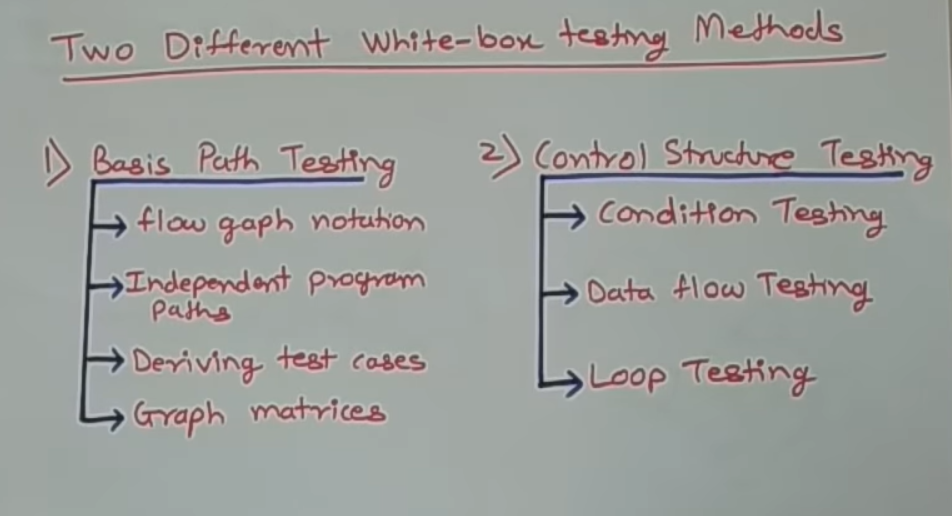 Two Different White-box testing Methods
1) Basis Path Testing
flow gaph notation
Independent program
Paths
Deriving test cases
Graph matrices
2) Control Structure Testing
Condition Testing
Data flow Testing
Loop Testing